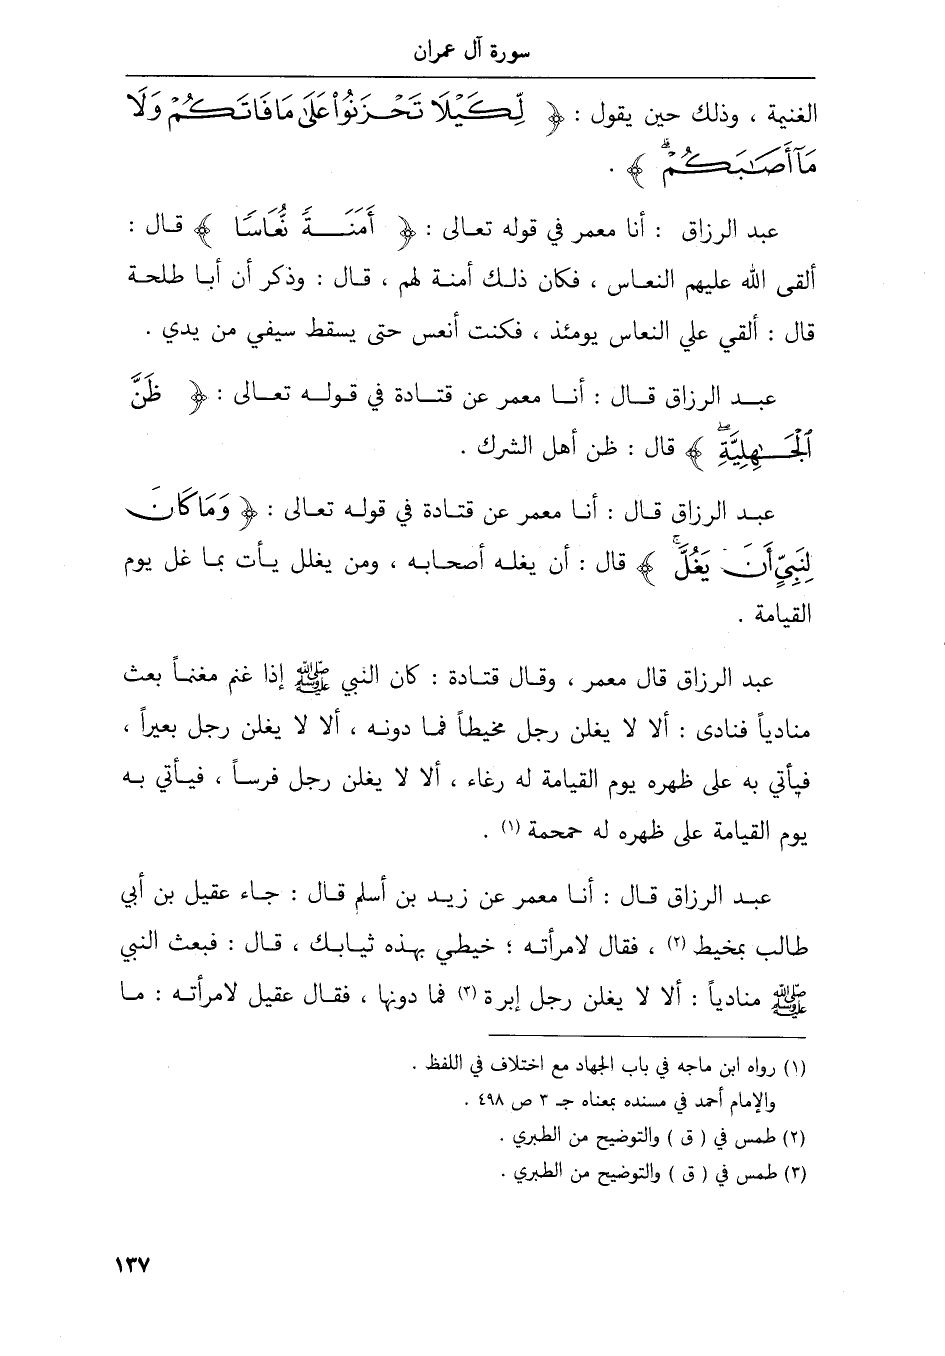 سورة آل عمران
الغنيمة ، وذلك حين يقول : ﴿ لِّكَيْلَا تَحْزَنُوا۟ عَلَىٰ مَا فَاتَكُمْ وَلَا
مَآ أَصَـٰبَكُمْ ۗ ﴾ .
عبد الرزاق : أنا معمر في قوله تعـالى : ﴿ أَمَنَـــةً نُّعَاسًا ﴾ قـال :
ألقى الله عليهم النعـاس ، فكان ذلـك أمنـة لهم ، قـال : وذكر أن أبـا طلحـة
قال : ألقي علي النعاس يومئذ ، فكنت أنعس حتى يسقط سيفي من يدي .
عبـد الرزاق قـال : أنـا معمر عن قتـادة في قولـه تعـالى : ﴿ ظَنَّ
ٱلْجَـٰهِلِيَّةِ ۖ ﴾ قال : ظن أهل الشرك .
عبـد الرزاق قـال : أنـا معمر عن قتـادة في قولـه تعـالى : ﴿ وَمَا كَانَ
لِنَبِيٍّ أَن يَغُلَّ ۚ ﴾ قال : أن يغلـه أصحـابـه ، ومن يغلل يـأت بمـا غل يوم
القيامة .
عبد الرزاق قال معمر ، وقـال قتـادة : كان النبي ﷺ إذا غنم مغنمـاً بعث
منادياً فنادى : ألا لا يغلن رجل مخيطاً فمـا دونـه ، ألا لا يغلن رجل بعيراً ،
فيأتي به على ظهره يوم القيامة له رغاء ، ألا لا يغلن رجل فرسـاً ، فيـأتي بـه
يوم القيامة على ظهره له حمحمة (١) .
عبـد الرزاق قـال : أنـا معمر عن زيـد بن أسلم قـال : جـاء عقيل بن أبي
طالب بمخيط (٢) ، فقال لامرأتـه : خيطي بهـذه ثيـابـك ، قـال : فبعث النبي
ﷺ منادياً : ألا لا يغلن رجل إبرة (٣) فما دونها ، فقـال عقيل لامرأتـه : مـا
(١) رواه ابن ماجه في باب الجهاد مع اختلاف في اللفظ .
والإمام أحمد في مسنده بمعناه جـ ٣ ص ٤٩٨ .
(٢) طمس في ( ق ) والتوضيح من الطبري .
(٣) طمس في ( ق ) والتوضيح من الطبري .
١٣٧